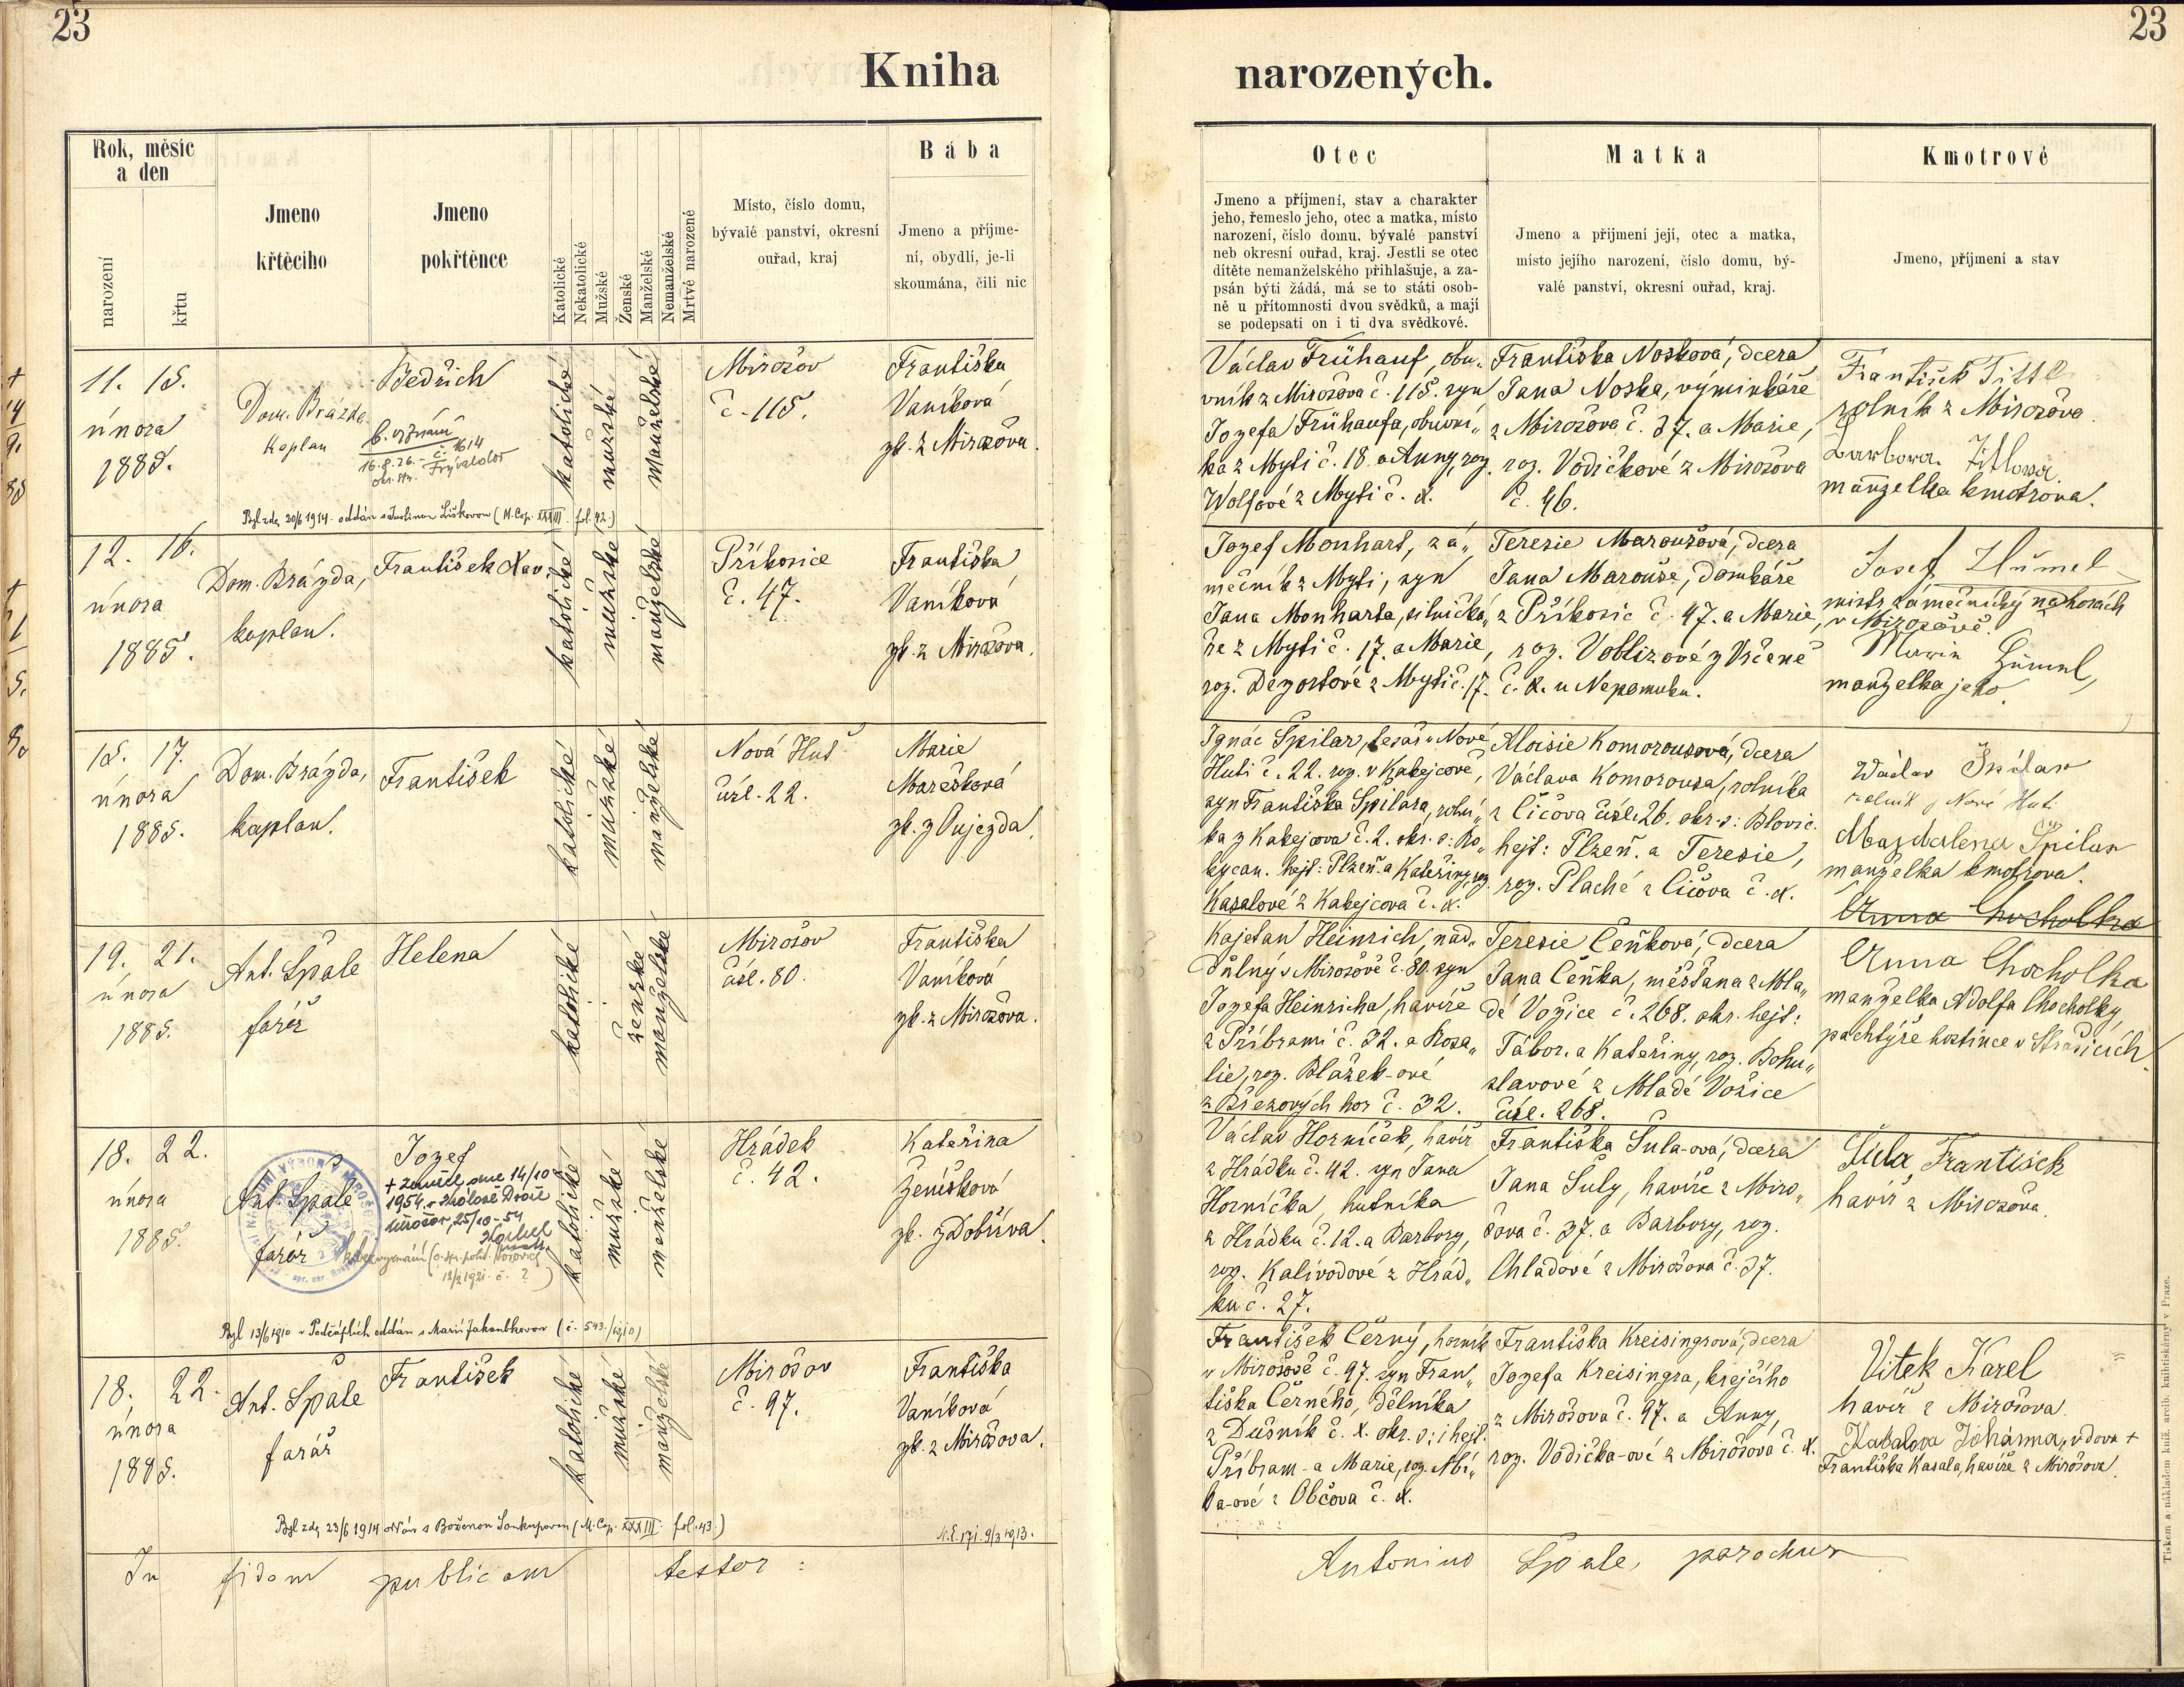 23
23
Kniha
narozených.
Rok, měsíc
a den
narození
křtu
Jmeno
křtěcího
Jmeno
pokřtěnce
Katolické
Nekatolické
Mužské
Ženské
Manželské
Nemanželské
Mrtvě narozené
Místo, číslo domu,
bývalé panství, okresní
ouřad, kraj
Bába
Jmeno a příjme-
ní, obydlí, je-li
skoumána, čili nic
Otec
Jmeno a příjmení, stav a charakter
jeho, řemeslo jeho, otec a matka, místo
narození, číslo domu, bývalé panství
neb okresní ouřad, kraj. Jestli se otec
dítěte nemanželského přihlašuje, a za-
psán býti žádá, má se to státi osob-
ně u přítomnosti dvou svědků, a mají
se podepsati on i ti dva svědkové.
Matka
Jmeno a přijmení její, otec a matka,
místo jejího narození, číslo domu, bý-
valé panství, okresní ouřad, kraj.
Kmotrové
Jmeno, příjmení a stav
11. 15.
února
1885.
Dom. Brázda
kaplan
Bedřich
b. vyznání
16.8.26. č. 1614
okr. str. Frývaldov
katolické
mužské
manželské
Mirošov
č. 115.
Františka
Vaníková
zk. z Mirošova.
Byl zde 20/6 1914 oddán s Liškovou (M. Cop. XXXIII. fol. 42.)
Václav Frühauf, obu„
vník z Mirošova č. 115. syn
Jozefa Frühaufa, obuvní„
ka z Mýti č. 18. a Anny, roz.
Wolfové z Mýti č. d.
Františka Nosková, dcera
Jana Noska, výminkáře
z Mirošova č. 37. a Marie,
roz. Vodičkové z Mirošova
č. 46.
František Tittl
rolník z Mirošova
Barbora Titlova
manželka kmotrova.
12. 16.
února
1885.
Dom. Brázda,
kaplan.
František Xav.
katolické
mužské
manželské
Příkosice
č. 47.
Františka
Vaníková
zk. z Mirošova.
Jozef Monhart, zá„
mečník z Mýti, syn
Jana Monharta, silničká„
ře z Mýti č. 17. a Marie,
roz. Dezortové z Mýti č. 17.
Teresie Maroušová, dcera
Jana Marouše, domkáře
z Příkosic č. 47. a Marie,
roz. Voblizové z Vrčeně
č. d. u Nepomuku.
Josef Hümel
mistr zámečnický na horách
v Mirošově.
Marie Hümel,
manželka jeho.
15. 17.
února
1885.
Dom. Brázda,
kaplan.
František
katolické
mužské
manželské
Nová Huť
čísl. 22.
Marie
Marešková
zk. z Oujezda.
Ignác Špilar, tesař v Nové
Huti č. 22. roz. v Kakejcově,
syn Františka Špilara, rolní„
ka z Kakejcova č. 2. okr. s: Ro„
kycan. hejt: Plzeň. a Kateřiny, roz.
Kasalové z Kakejcova č. d.
Aloisie Komorousová, dcera
Václava Komorousa, rolníka
z Čičova čísl. 26. okr. s: Blovic.
hejt: Plzeň. a Teresie,
roz. Plaché z Čičova č. d.
Wáclav Špilar
rolník z Nové Huti
Magdalena Špilar
manželka kmotrova.
Anna Chocholka
19. 21.
února
1885.
Ant. Špale
farář
Helena
katolické
ženské
manželské
Mirošov
čísl. 80.
Františka
Vaníková
zk. z Mirošova.
Kajetan Heinrich, nad„
důlný v Mirošově č. 80. syn
Jozefa Heinricha, havíře
z Příbrami č. 32. a Rosa„
lie, roz. Blažek-ové
z Březových hor č. 32.
Teresie Čeňková, dcera
Jana Čeňka, měšťana z Mla„
dé Vožice č. 268. okr. hejt:
Tábor. a Kateřiny, roz. Bohu„
slavové z Mladé Vožice
čísl. 268.
Anna Chocholka
manželka Adolfa Chocholky,
pachtýře hostince v Strašicích.
18. 22.
února
1885.
Ant. Špale
farář
Jozef
+ zemřel dne 14/10
1954 v Králově Dvoře
Mirošov, 25/10-54
bez vyznání (o. sp. polit. Hořovice
12/2 1921. č. ?)
katolické
mužské
manželské
Hrádek
č. 42.
Kateřina
Ženíšková
zk. z Dobříva.
Byl 13/6 1910 v Podčáplích oddán s Marií Jakoubkovou (č. 543./1910)
Václav Horníček, havíř
z Hrádku č. 42. syn Jana
Horníčka, hutníka
z Hrádku č. 12. a Barbory,
roz. Kalivodové z Hrád„
ku č. 27.
Františka Šula-ová, dcera
Jana Šuly, havíře z Miro„
šova č. 37. a Barbory, roz.
Chladové z Mirošova č. 37.
Šula František
havíř z Mirošova.
18. 22.
února
1885.
Ant. Špale
farář
František
katolické
mužské
manželské
Mirošov
č. 97.
Františka
Vaníková
zk. z Mirošova.
Byl zde 23/6 1914 oddán s Boženou Soukupovou (M. Cop. XXXIII. fol. 43.)
N.E. 171. 9/3 1913.
František Černý, horník
v Mirošově č. 97. syn Fran„
tiška Černého, dělníka
z Dušník č. d. okr. s: i hejt.
Příbram. a Marie, roz. Mí„
ka-ové z Občova č. d.
Františka Kreisingrová, dcera
Jozefa Kreisingra, krejčího
z Mirošova č. 97. a Anny,
roz. Vodička-ové z Mirošova č. d.
Vitek Karel
havíř z Mirošova.
Kasalova Johanna, vdova +
Františka Kasala, havíře z Mirošova.
In fidem publicam testor :
Antonius Špale, parochus
Tiskem a nákladem kníž. arcib. knihtiskárny v Praze.